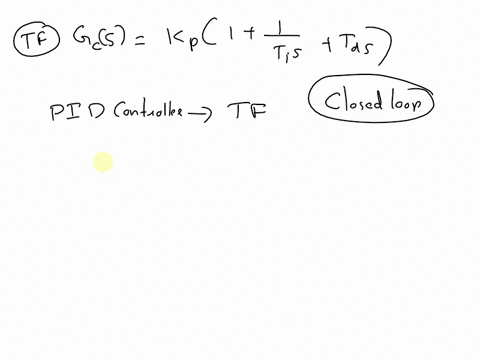 TF Gc(s) = Kp(1 + 1/Tis + Tds)
PID Controller → TF Closed loop